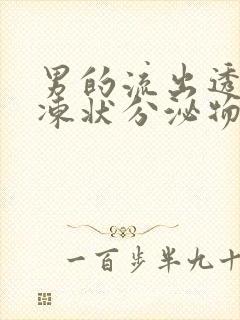 男的流出透
凍状分泌物
一百步半九十